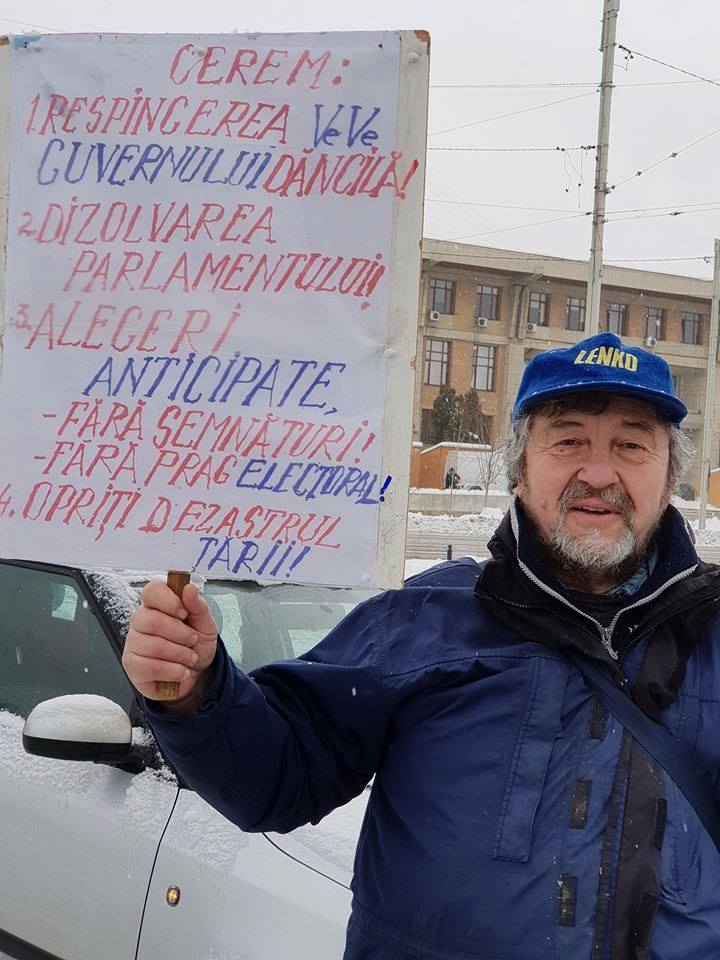 CEREM:
1. RESPINGEREA VeVe
GUVERNULUI DĂNCILĂ!
2. DIZOLVAREA
PARLAMENTULUI!
3. ALEGERI
ANTICIPATE,
-FĂRĂ SEMNĂTURI!
-FĂRĂ PRAG ELECTORAL!
4. OPRIȚI DEZASTRUL
ȚĂRII!
LENKO